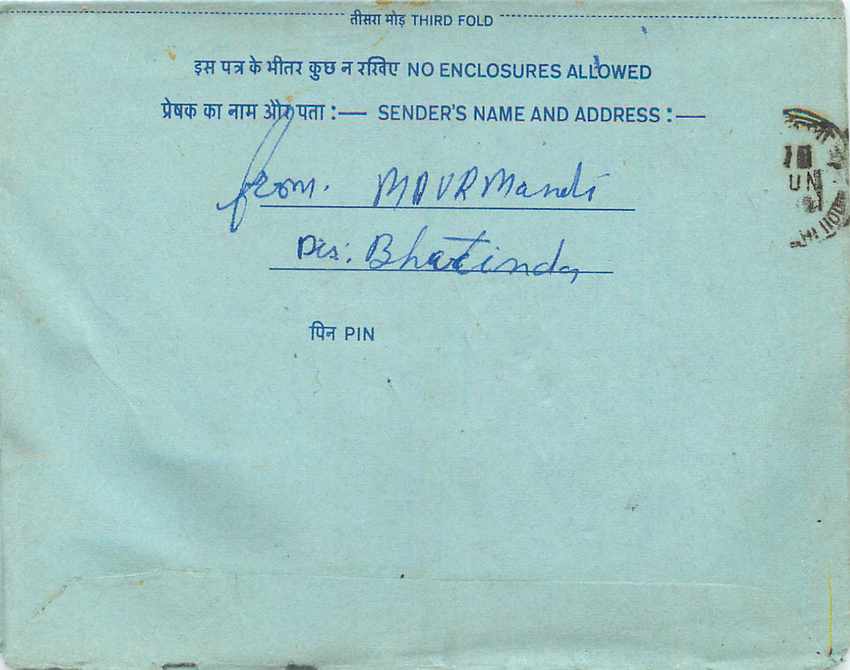 तीसरा मोड़ THIRD FOLD
इस पत्र के भीतर कुछ न रखिए NO ENCLOSURES ALLOWED
प्रेषक का नाम और पता :— SENDER'S NAME AND ADDRESS :—
from. MAUR Mandi
Dis: Bhatinda
पिन PIN
UN